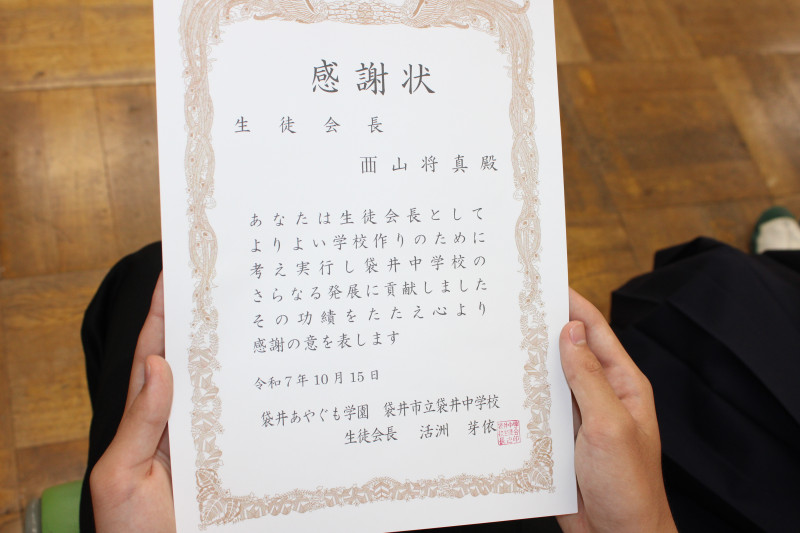 感謝状
生徒会長
西山将真殿
あなたは生徒会長として
よりよい学校作りのために
考え実行し袋井中学校の
さらなる発展に貢献しました
その功績をたたえ心より
感謝の意を表します
令和7年10月15日
袋井あやぐも学園 袋井市立袋井中学校
生徒会長 活洲 芽依